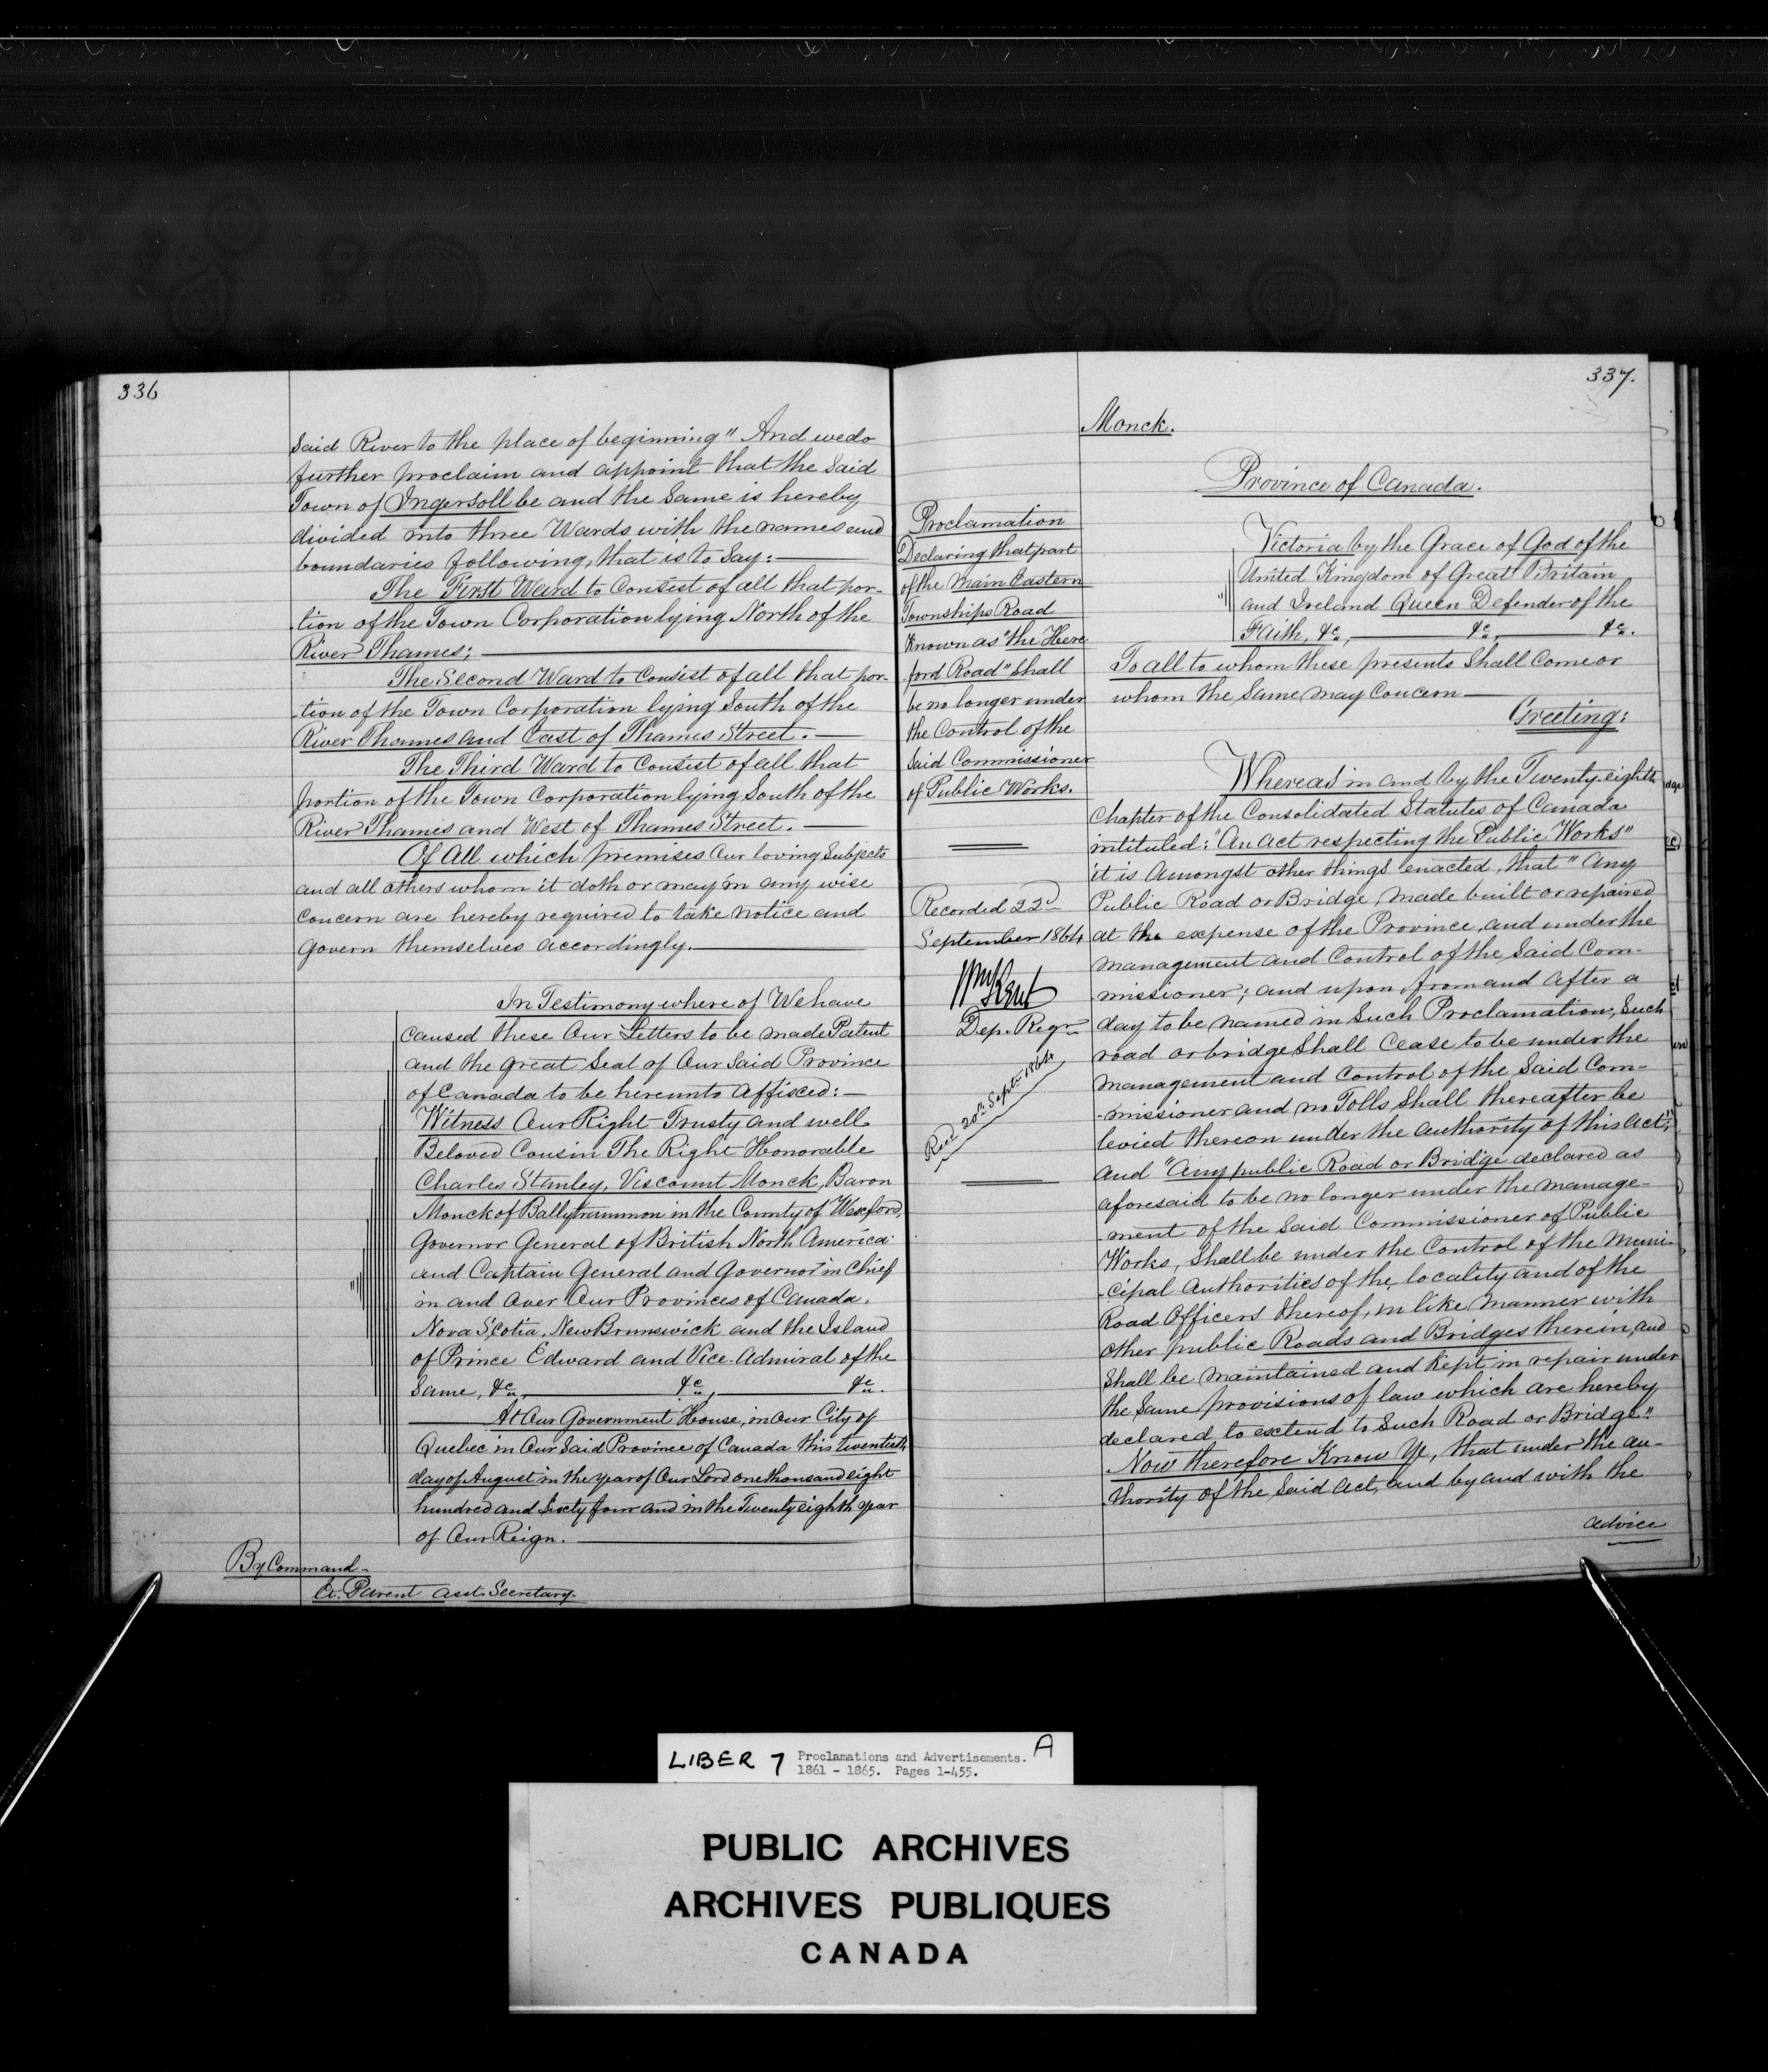 336
said River to the place of beginning" And we do
further proclaim and appoint that the said
Town of Ingersoll be and the same is hereby
divided into three Wards with the names and
boundaries following, that is to say:
The First Ward to Consist of all that por-
tion of the Town Corporation lying North of the
River Thames;
The Second Ward to Consist of all that por-
tion of the Town Corporation lying South of the
River Thames and East of Thames Street.
The Third Ward to Consist of all that
portion of the Town Corporation lying South of the
River Thames and West of Thames Street.
Of All which premises Our loving Subjects
and all others whom it doth or may in any wise
Concern are hereby required to take notice and
govern themselves accordingly.
In Testimony where of We have
caused these Our Letters to be made Patent
and the great Seal of Our Said Province
of Canada to be hereunto affixed:
Witness Our Right Trusty and well
Beloved Cousin The Right Honorable
Charles Stanley, Viscount Monck, Baron
Monck of Ballytrammon in the County of Wexford,
Governor General of British North America
and Captain General and Governor in Chief
in and over Our Provinces of Canada,
Nova Scotia, New Brunswick and the Island
of Prince Edward and Vice-Admiral of the
Same, &c, &c, &c.
At Our Government House, in Our City of
Quebec in Our Said Province of Canada this twentieth
day of August in the year of Our Lord one thousand eight
hundred and Sixty four and in the Twenty eighth year
of Our Reign.
By Command
E. Parent Asst. Secretary.
337.
Monck.
Province of Canada.
Proclamation
Declaring that part
of the Main Eastern
Townships Road
Known as "the Here
ford Road" shall
be no longer under
the Control of the
Said Commissioner
of Public Works.
Recorded 22d
September 1864
Wm Kent
Dep. Regr
Recd 20th Sept. 1864
Victoria by the Grace of God of the
United Kingdom of Great Britain
and Ireland Queen Defender of the
Faith, &c, &c, &c.
To all to whom these presents Shall Come or
whom the Same may Concern
Greeting:
Whereas in and by the Twenty eighth
Chapter of the Consolidated Statutes of Canada
intituled: "An Act respecting the Public Works"
it is Amongst other things enacted, that "Any
Public Road or Bridge, made built or repaired
at the expense of the Province, and under the
management and Control of the Said Com-
missioner; and upon from and after a
day to be named in Such Proclamation, Such
road or bridge Shall Cease to be under the
management and Control of the Said Com-
-missioner and no Tolls Shall thereafter be
levied thereon under the authority of this Act;"
and "Any public Road or Bridge declared as
aforesaid to be no longer under the manage-
ment of the Said Commissioner of Public
Works, Shall be under the Control of the Muni-
-cipal Authorities of the locality and of the
Road Officers thereof, in like manner with
other public Roads and Bridges therein, and
Shall be maintained and Kept in repair under
the Same provisions of law which are hereby
declared to extend to Such Road or Bridge."
Now therefore Know Ye, that under the au-
thority of the Said Act, and by and with the
advice
LIBER 7 Proclamations and Advertisements. A
1861 - 1865. Pages 1-455.
PUBLIC ARCHIVES
ARCHIVES PUBLIQUES
CANADA